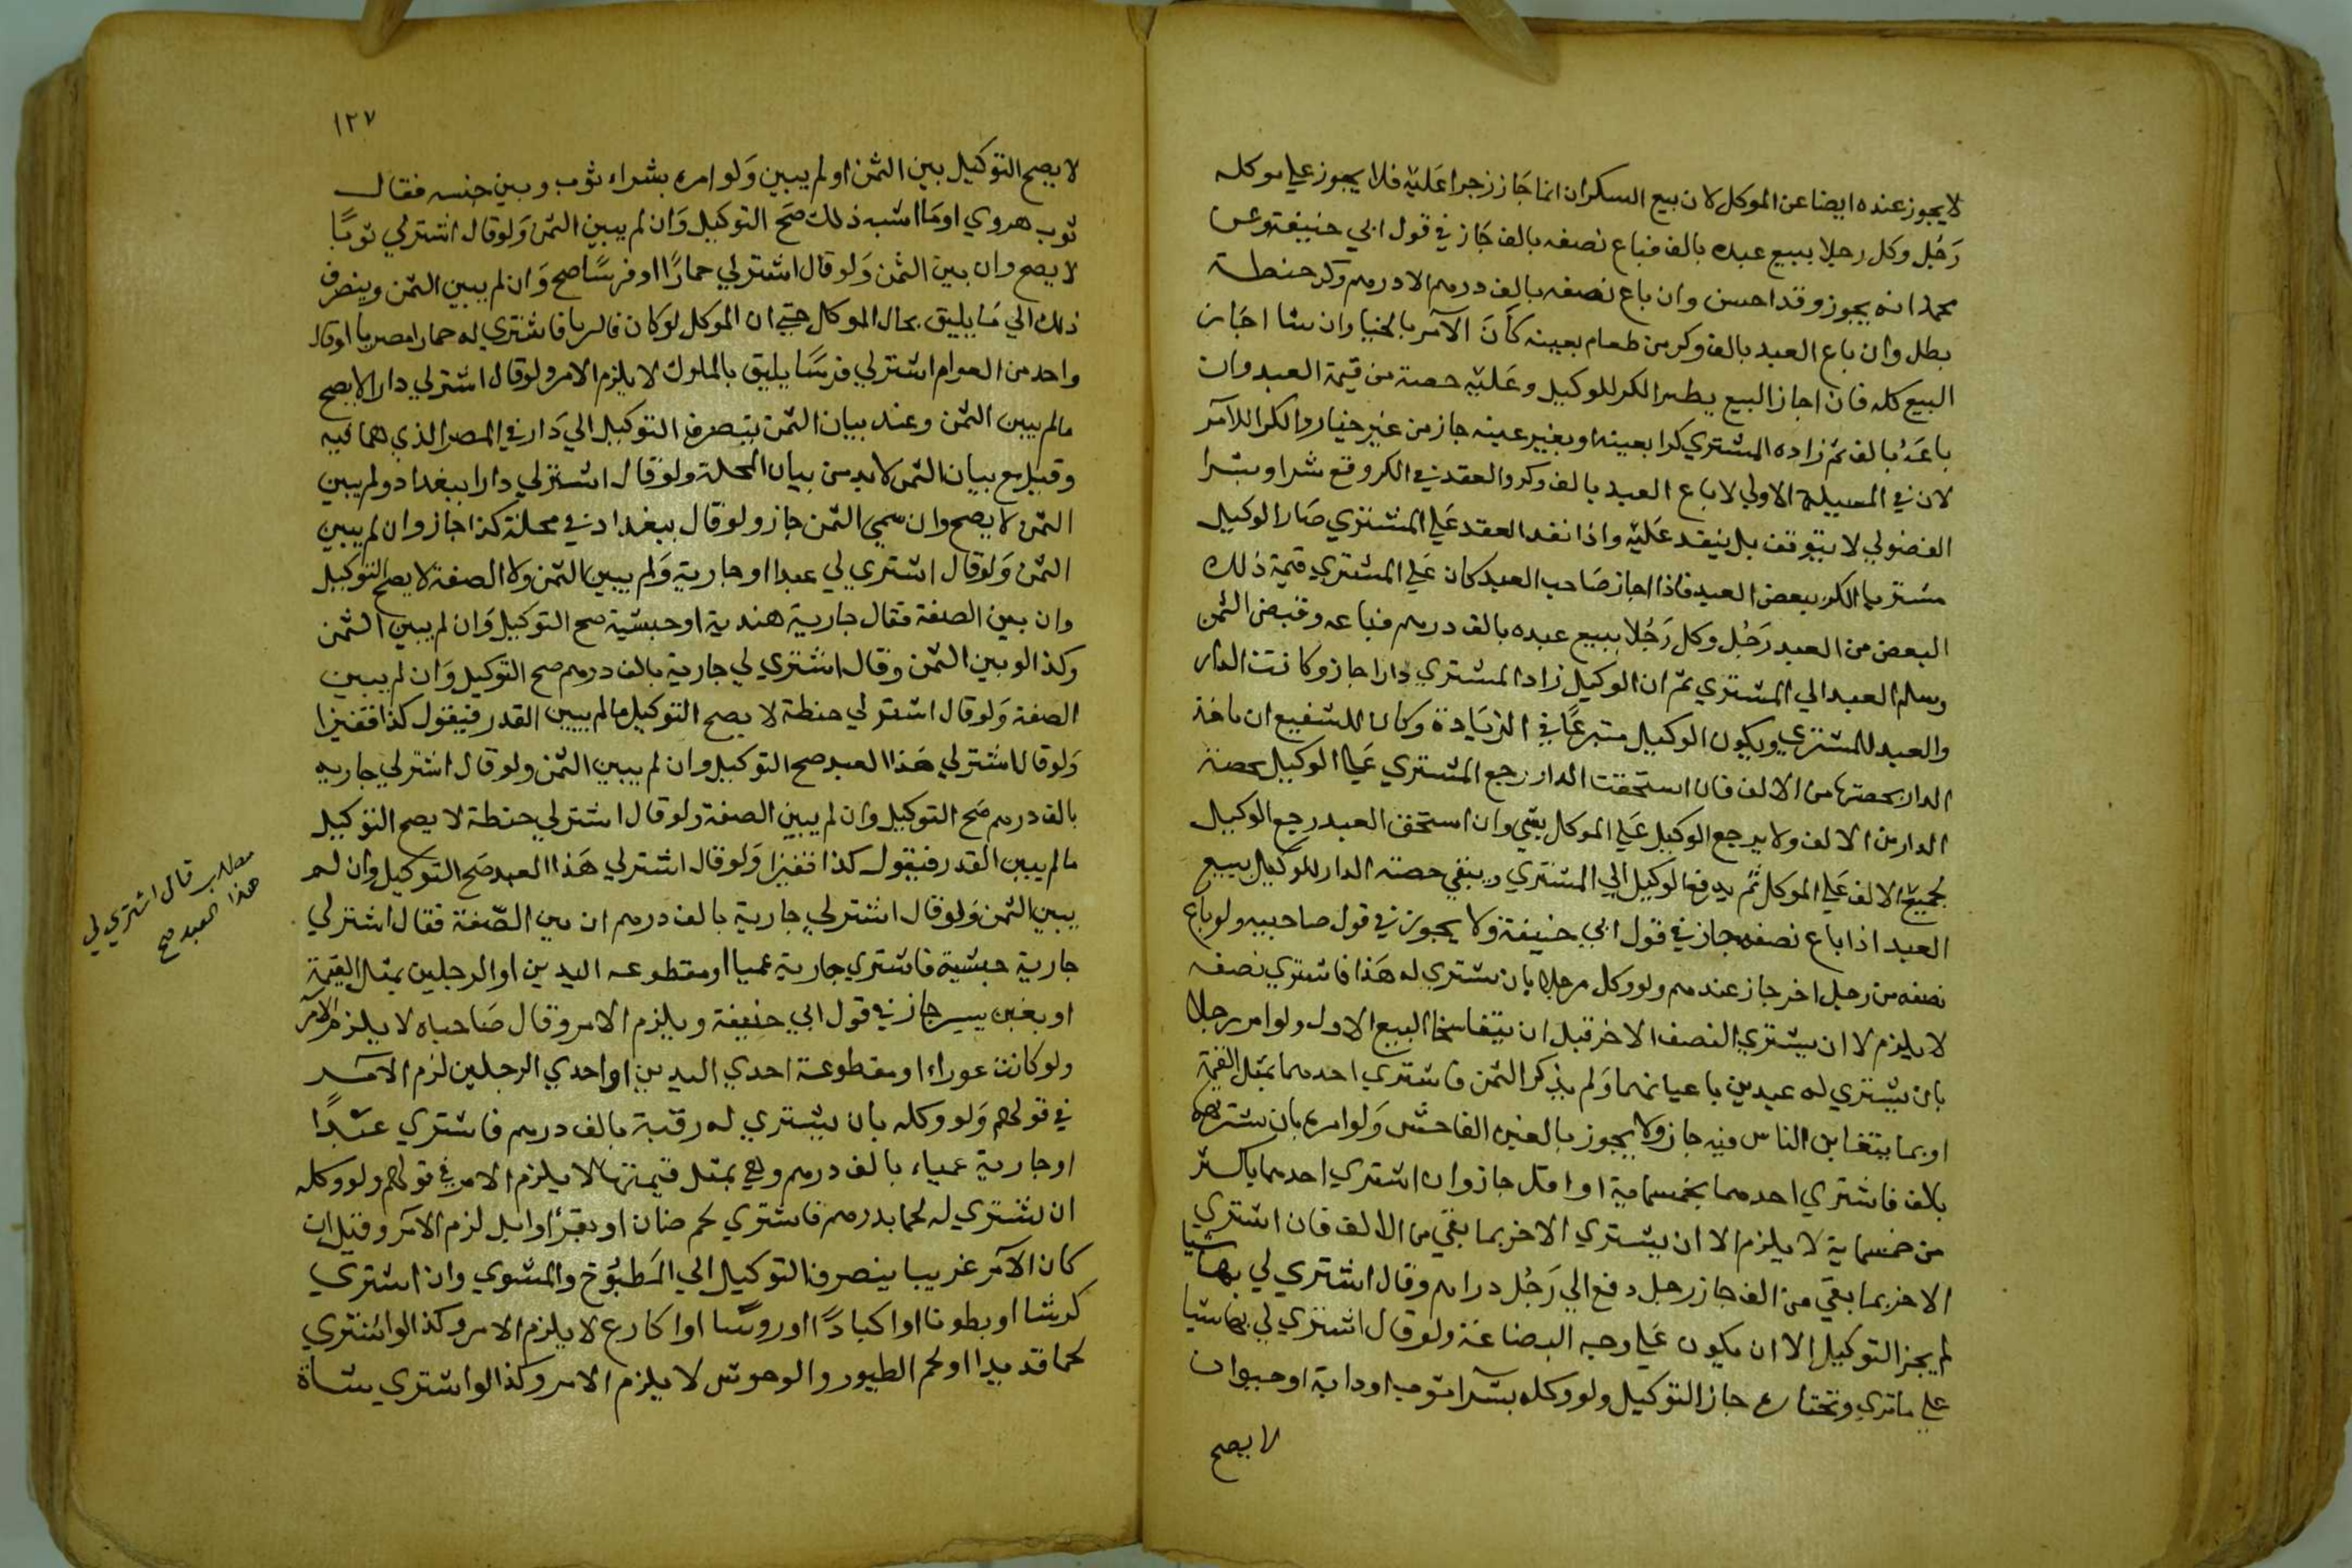 لا يجوز عنده ايضا عن الموكل لان بيع السكران انما جَاز زجرا عَليْه فلا يجوز علي موكله
رَجُل وكل رجلا ببيع عبده بالف فباع نصفه بالف جَاز في قول ابي حنيفة وعن
محمد انه يجوز وقد احسن وان باع نصفه بالف درهم الا درهم وكر حنطة
بطل وان باع العبد بالف وكر من طعام بعينه كَانَ الآمر بالخيار وان شا اجَاز
البيع كله فان اجاز البيع الكر للوكيل وعَليْه حصته من قيمة العبد وان
باعَهُ بالف ثم زاده المشتري كرا بعينه او بغير عينه جاز من غير خيار والكر للآمر
لان في المسيلة الاولي لا باع العبد بالف وكر والعقد في الكر وقع شرا وشرا
الفضولي لا يتوقف بل ينفد عَليْه واذا نفد العقد عَلي المشتري صَار الوكيل
مشتريا الكر ببعض العبد فاذا اجاز صَاحب العبد كان عَلي المشتري قيمة ذلك
البعض من العبد رَجُل وكل رَجُلا ببيع عبده بالف درهم فباعه وقبض الثمن
وسلم العبد الي المشتري ثم ان الوكيل زاد المشتري دارا جاز وكانت الدار
والعبد للمشتري ويكون الوكيل متبرعًا في الزيَادة وكان للشفيع ان ياخذ
الدار بحصتها من الالف فان استحقت الدار رجع المشتري عَلي الوكيل بحصة
الدار من الالف ولا يرجع الوكيل عَلي الموكل بشي وان استحق العبد رجع الوكيل
بجميع الالف عَلي الموكل ثم يدفع الوكيل الي المشتري ويبقي حصة الدار للوكيل ببيع
العبد اذا باع نصفه جاز في قول ابي حنيفة ولا يجوز في قول صاحبيه ولو باع
نصفه من رجل اخر جاز عندهم ولو وكل رجلا بان يشتري له هَذا فاشتري نصفه
لا يلزم الا ان يشتري النصف الاخر قبل ان يتفاسخا البيع الاول ولو امر رجلا
بان يشتري له عبدين باعيانهما وَلم يذكر الثمن فاشتري احدهما بمثل القيمة
او بما يتغابن الناس فيه جاز ولا يجوز بالغبن الفاحش وَلو امره بان يشتريهما
بالف فاشتري احدهما بخمسماية او اقل جاز وان اشتري احدهما باكثر
من خمسماية لا يلزم الا ان يشتري الاخر بما بقي من الالف فان اشتري
الاخر بما بقي من الف جاز رجل دفع الي رَجُل دراهم وقال اشتري لي بها شيا
لم يجز التوكيل الا ان يكون عَلي وجه البضاعَة ولو قال اشتري لي بها شيا
علي ما تري وتختار جاز التوكيل ولو وكله بشرا ثوب او دابة او حيوان
لا يصح
١٢٧
لا يصح التوكيل بين الثمن او لم يبين وَلو امره بشراء ثوب وبين جنسه فقال
ثوب هروي او مَا اشبه ذلك صَح التوكيل وَان لم يبين الثمن وَلو قال اشتر لي ثوبًا
لا يصح وان بين الثمن وَلو قال اشتر لي حمارًا او فرسًا صح وَان لم يبين الثمن وينصرف
ذلك الي مَا يليق بحال الموكل حتي ان الموكل لو كان فاشتري له حمارا مصريا او قال
واحد من العوام اشتر لي فرسًا يليق بالملوك لا يلزم الامر ولو قال اشتر لي دارا لا يصح
مالم يبين الثمن وعند بيان الثمن ينصرف التوكيل الي دَار في المصر الذي هما فيه
وقيل مع بيان الثمن لا بد من بيان المحلة ولو قال اشتر لي دارا ببغداد ولم يبين
الثمن لا يصح وان سمي الثمن جاز ولو قال ببغداد في محلة كذا جاز وان لم يبين
الثمن وَلو قال اشتري لي عبدا او جارية وَلم يبين الثمن ولا الصفة لا يصح التوكيل
وان بين الصفة فقال جارية هندية او حبشية صح التوكيل وَان لم يبين الثمن
وكذا لو بين الثمن وقال اشتري لي جارية بالف درهم صح التوكيل وَان لم يبين
الصفة وَلو قال اشتر لي حنطة لا يصح التوكيل مالم يبين القدر فيقول كذا قفيزا
وَلو قال اشتر لي هَذا العبد صح التوكيل وان لم يبين الثمن ولو قال اشتر لي جاريه
بالف درهم صَح التوكيل وان لم يبين الصفة ولو قال اشتر لي حنطة لا يصح التوكيل
مالم يبين القدر فيقول كذا قفيزا وَلو قال اشتر لي هَذا العبد صَح التوكيل وان لم
يبين الثمن وَلو قال اشتر لي جارية بالف درهم ان بين الصّفة فقال اشتر لي
جارية حبشية فاشتري جارية عميا او مقطوعه اليدين او الرجلين بمثل القيمة
او بغبن يسير جاز في قول ابي حنيفة ويلزم الامر وقال صَاحباه لا يلزم الآمر
ولو كانت عوراء او مقطوعة احدي اليدين او احدي الرجلين لزم الآمر
في قولهم وَلو وكله بان يشتري له رقبة بالف درهم فاشتري عبدًا
او جارية عمياء بالف درهم وهي بمثل قيمتها لا يلزم الامر في قولهم ولو وكله
ان يشتري له لحما بدرهم فاشتري لحم ضان او بقرًا او ابل لزم الآمر وقيل ان
كان الآمر غريبا ينصرف التوكيل الي المَطبُوخ والمشوي وان اشتري
كرشا او بطونا او اكبادًا او روسًا او اكارع لا يلزم الامر وكذا لو اشتري
لحما قديدا او لحم الطيور والوحوش لا يلزم الامر وكذا لو اشتري شاة
مطلب قال اشتري لي
هذا العبد صح